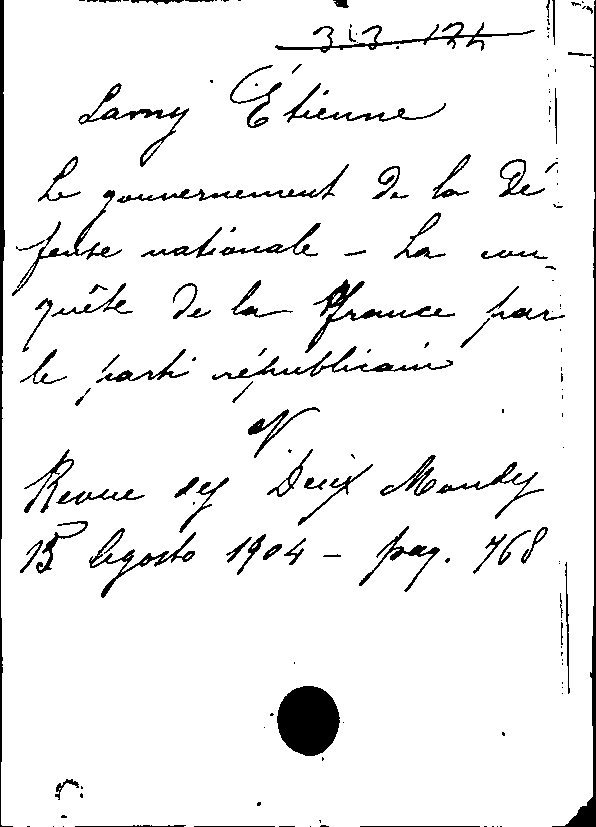 3.3.122
Lamy Étienne
Le gouvernement de la Dé
fense nationale - La con-
quête de la France par
le parti républicain
Revue des Deux Mondes
15 Agosto 1904 - pag. 768